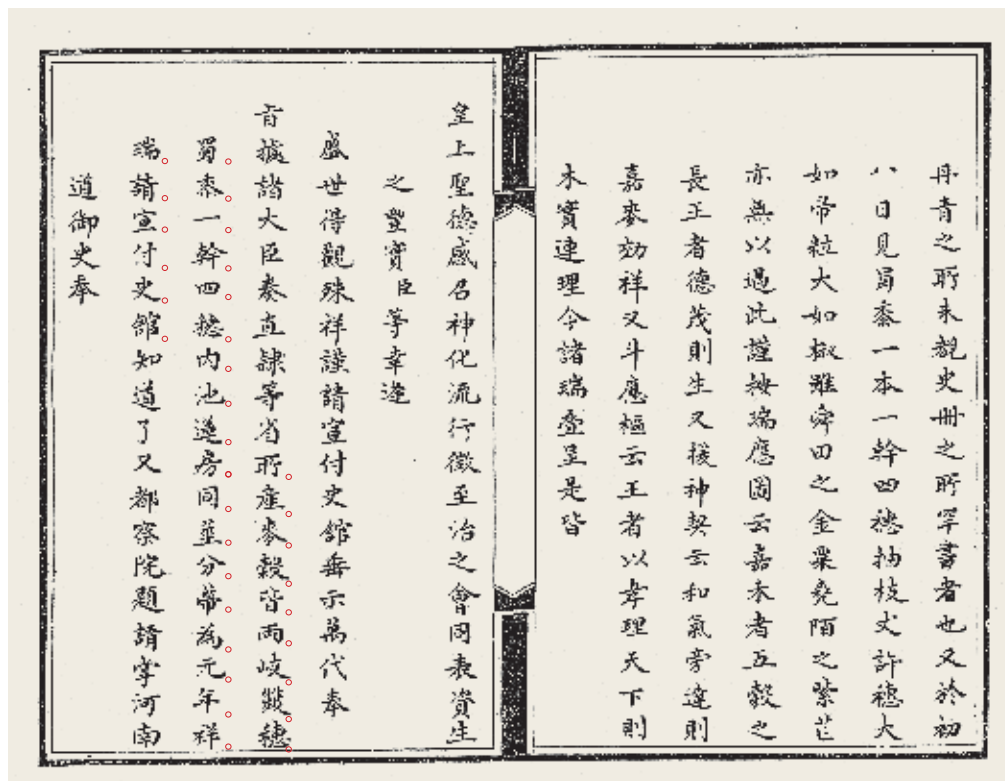 丹青之所未覩史冊之所罕書者也又於初
八日見蜀黍一本一幹四穗抽枝丈許穗大
如帚粒大如椒雖舜田之金粟堯陌之紫芒
亦無以過此謹按瑞應圖云嘉禾者五穀之
長王者德茂則生又援神契云和氣旁達則
嘉麥効祥又斗應樞云王者以孝理天下則
木實連理今諸瑞叠呈是皆
皇上聖德感召神化流行徵至治之會同表資生
之豐實臣等幸逢
盛世得觀殊祥謹請宣付史館垂示萬代奉
旨據諸大臣奏直隸等省所產麥穀皆兩岐雙穗
蜀黍一幹四穗內池蓮房同莖分蒂為元年祥
瑞請宣付史館知道了又都察院題請掌河南
道御史奉